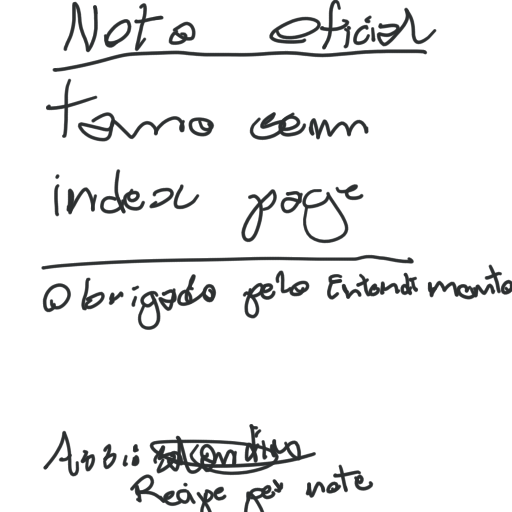 Nota oficial
tamo semm
index page
Obrigado pelo Entendimento
Ass:
Recipe per note